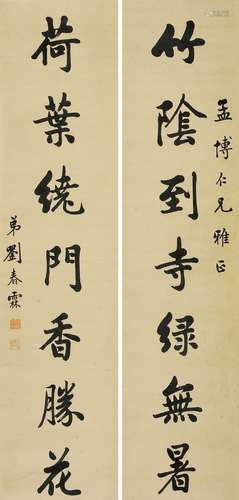 竹陰到寺綠無暑
孟博仁兄雅正
荷葉繞門香勝花
弟劉春霖